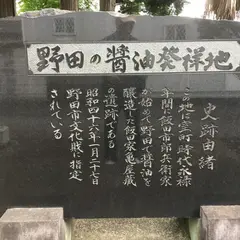 野田の醤油発祥地
史跡由緒
この地は室町時代永禄
年間飯田市郎兵衛家
が始めて野田で醤油を
醸造した飯田家亀屋蔵
の遺跡である
昭和四十六年一月二十七日
野田市文化財に指定
されている